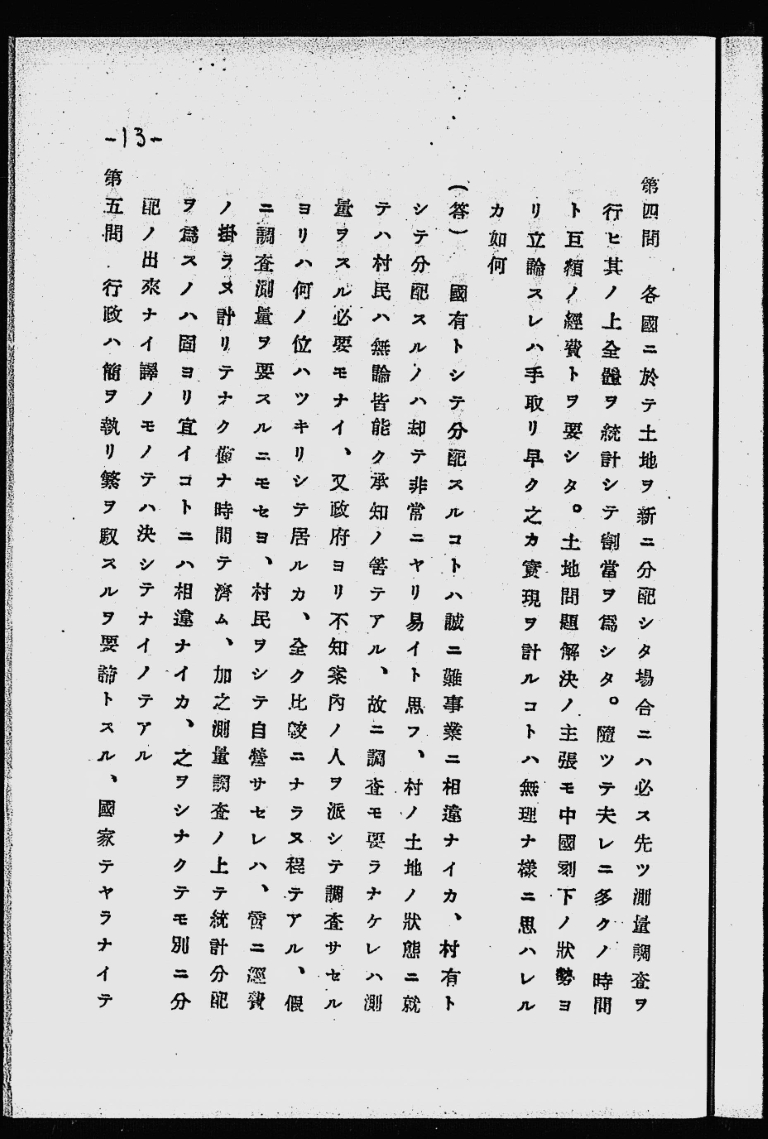 第四問　各國ニ於テ土地ヲ新ニ分配シタ場合ニハ必ス先ツ測量調査ヲ
行ヒ其ノ上全體ヲ統計シテ割當ヲ爲シタ。隨ツテ夫レニ多クノ時間
ト巨額ノ經費トヲ要シタ。土地問題解決ノ主張モ中國刻下ノ狀勢ヨ
リ立論スレハ手取リ早ク之カ實現ヲ計ルコトハ無理ナ樣ニ思ハレル
カ如何
(答)　國有トシテ分配スルコトハ誠ニ難事業ニ相違ナイカ、村有ト
シテ分配スルノハ却テ非常ニヤリ易イト思フ、村ノ土地ノ狀態ニ就
テハ村民ハ無論皆能ク承知ノ筈テアル、故ニ調査モ要ラナケレハ測
量ヲスル必要モナイ、又政府ヨリ不知案內ノ人ヲ派シテ調査サセル
ヨリハ何ノ位ハツキリシテ居ルカ、全ク比較ニナラヌ程テアル、假
ニ調査測量ヲ要スルニモセヨ、村民ヲシテ自營サセレハ、啻ニ經費
ノ掛ラヌ計リテナク僅ナ時間テ濟ム、加之測量調査ノ上テ統計分配
ヲ爲スノハ固ヨリ宜イコトニハ相違ナイカ、之ヲシナクテモ別ニ分
配ノ出來ナイ譯ノモノテハ決シテナイノテアル
第五問　行政ハ簡ヲ執リ繁ヲ馭スルヲ要諦トスル、國家テヤラナイテ
-13-